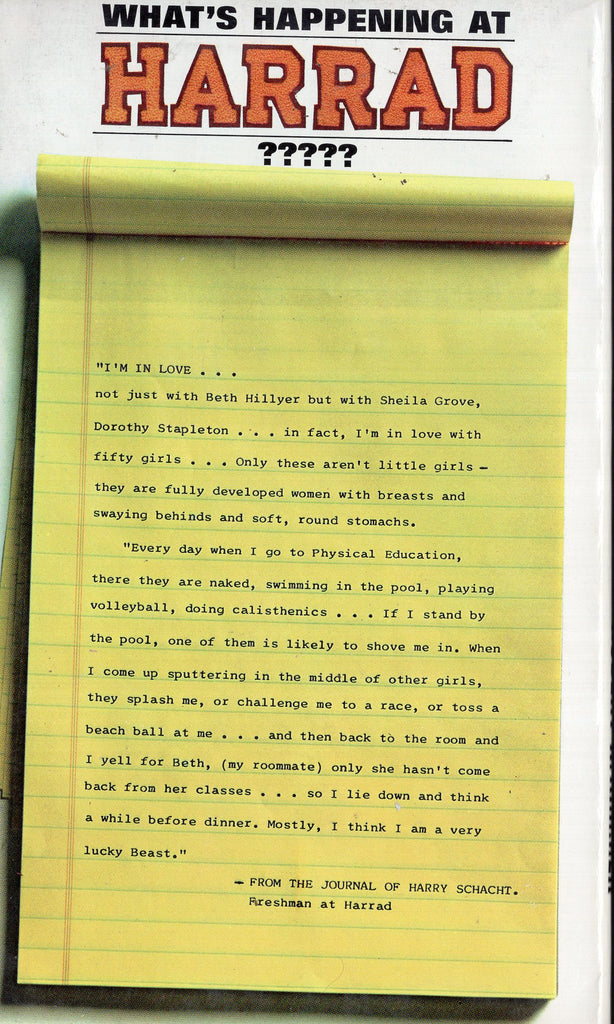 WHAT'S HAPPENING AT
HARRAD
?????
"I'M IN LOVE . . .
not just with Beth Hillyer but with Sheila Grove,
Dorothy Stapleton . . . in fact, I'm in love with
fifty girls . . . Only these aren't little girls —
they are fully developed women with breasts and
swaying behinds and soft, round stomachs.
"Every day when I go to Physical Education,
there they are naked, swimming in the pool, playing
volleyball, doing calisthenics . . . If I stand by
the pool, one of them is likely to shove me in. When
I come up sputtering in the middle of other girls,
they splash me, or challenge me to a race, or toss a
beach ball at me . . . and then back to the room and
I yell for Beth, (my roommate) only she hasn't come
back from her classes . . . so I lie down and think
a while before dinner. Mostly, I think I am a very
lucky Beast."
— FROM THE JOURNAL OF HARRY SCHACHT.
Freshman at Harrad